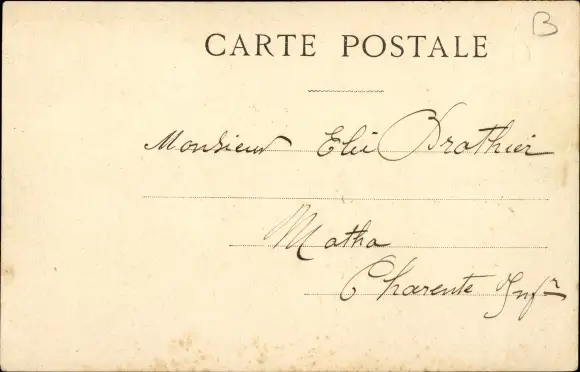 B
CARTE POSTALE
Monsieur Elie Brothier
Matha
Charente Infr